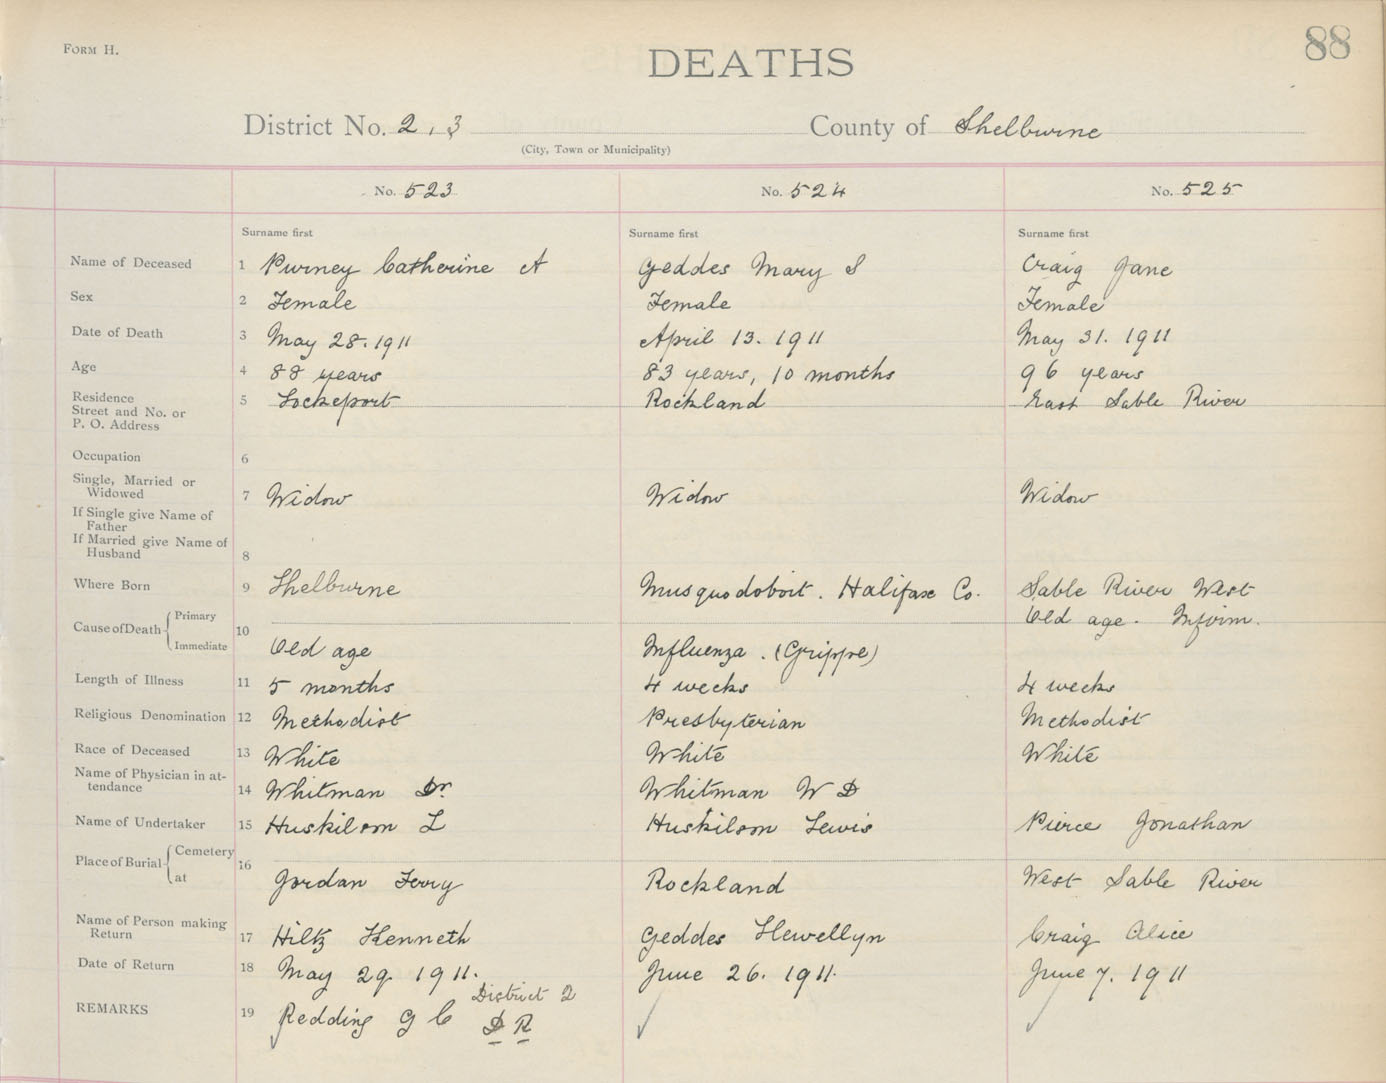 Form H.
88
DEATHS
District No. 2, 3 County of Shelburne
(City, Town or Municipality)
No. 523 No. 524 No. 525
Surname first Surname first Surname first
Name of Deceased 1 Purney Catherine A Geddes Mary S Craig Jane
Sex 2 Female Female Female
Date of Death 3 May 28. 1911 April 13. 1911 May 31. 1911
Age 4 88 years 83 years, 10 months 96 years
Residence
Street and No. or
P. O. Address 5 Lockeport Rockland East Sable River
Occupation 6
Single, Married or
Widowed 7 Widow Widow Widow
If Single give Name of
Father
If Married give Name of
Husband 8
Where Born 9 Shelburne Musquodoboit. Halifax Co. Sable River West
Cause of Death Primary Old age. Infirm.
10
Immediate Old age Influenza. (Grippe)
Length of Illness 11 5 months 4 weeks 4 weeks
Religious Denomination 12 Methodist Presbyterian Methodist
Race of Deceased 13 White White White
Name of Physician in at-
tendance 14 Whitman Dr. Whitman W D
Name of Undertaker 15 Huskilson L Huskilson Lewis Pierce Jonathan
Place of Burial Cemetery
16
at Jordan Ferry Rockland West Sable River
Name of Person making
Return 17 Hiltz Kenneth Geddes Llewellyn Craig Alice
Date of Return 18 May 29. 1911. June 26. 1911. June 7. 1911
District 2
REMARKS 19 Redding G C D R